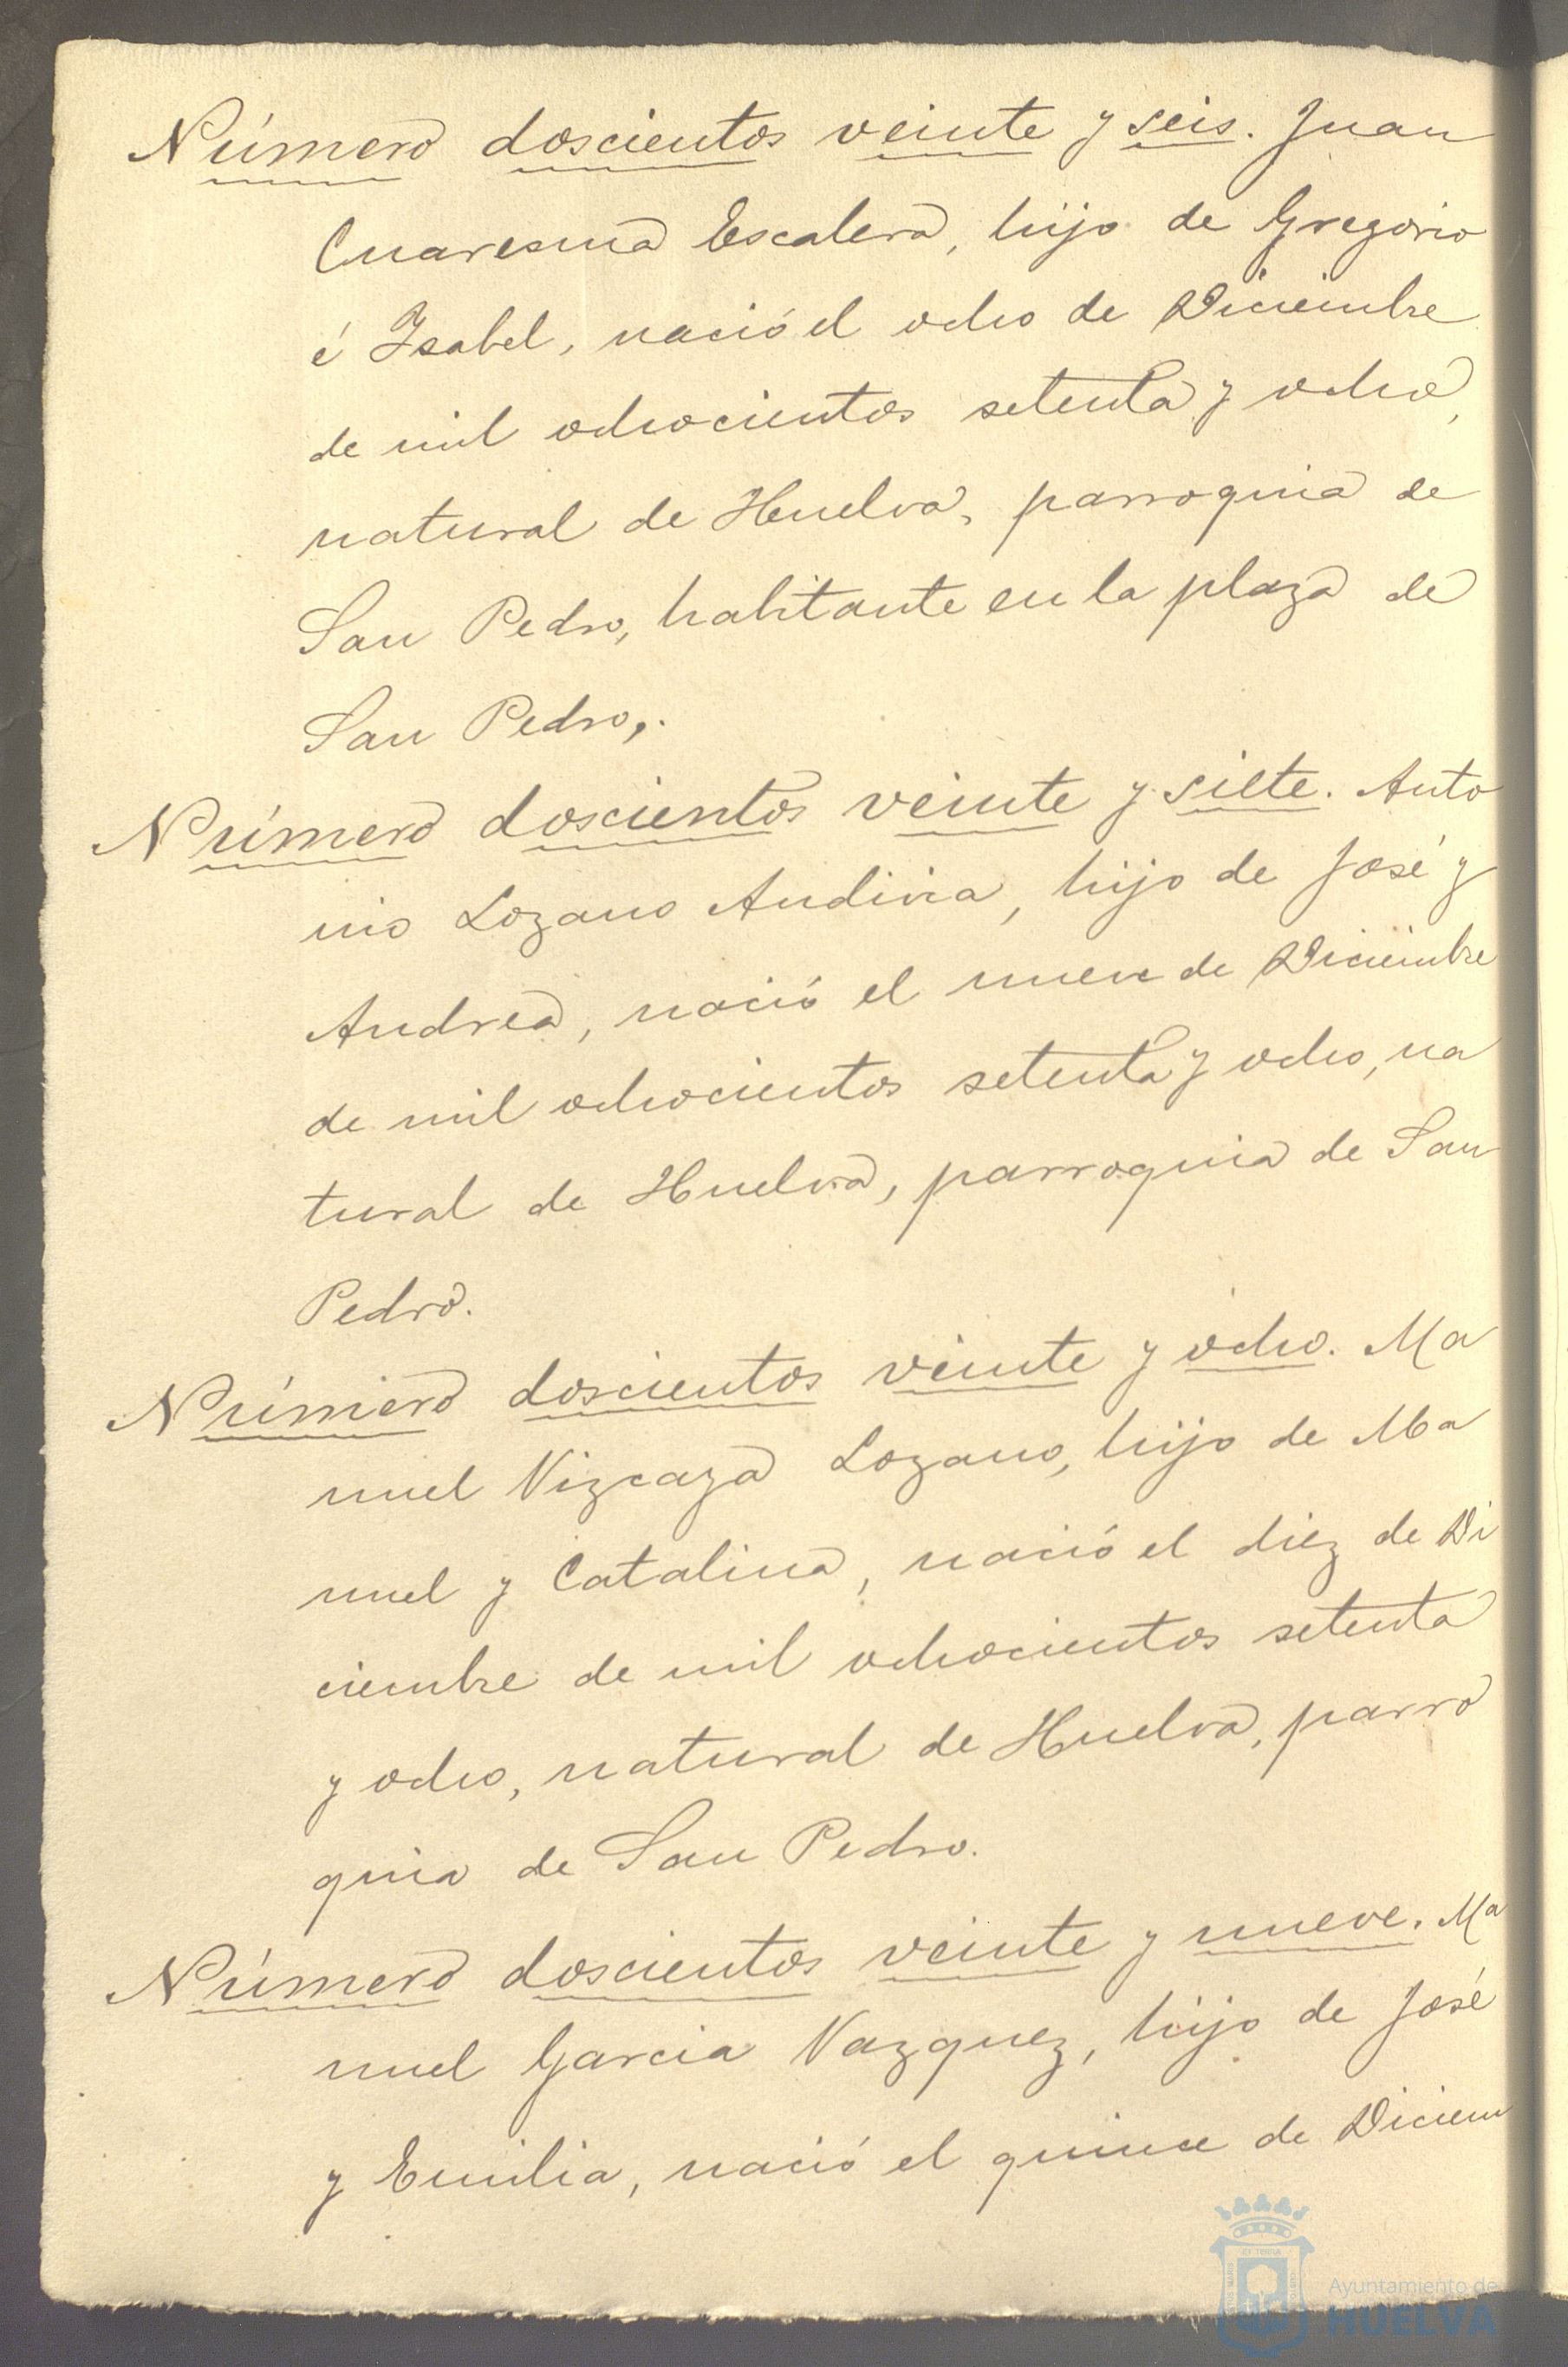 Número doscientos veinte y seis. Juan
Cuaresma Escalera, hijo de Gregorio
é Isabel, nació el ocho de Diciembre
de mil ochocientos setenta y ocho,
natural de Huelva, parroquia de
San Pedro, habitante en la plaza de
San Pedro,.
Número doscientos veinte y siete. Anto
nio Lozano Andivia, hijo de José y
Andrea, nació el nueve de Diciembre
de mil ochocientos setenta y ocho, na
tural de Huelva, parroquia de San
Pedro.
Número doscientos veinte y ocho. Ma
nuel Vizcaya Lozano, hijo de Ma
nuel y Catalina, nació el diez de Di
ciembre de mil ochocientos setenta
y ocho, natural de Huelva, parro
quia de San Pedro.
Número doscientos veinte y nueve. Ma
nuel Garcia Vazquez, hijo de José
y Emilia, nació el quince de Diciem
Ayuntamiento de
HUELVA